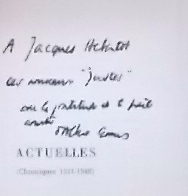 A Jacques Hébertot
ces nouveaux "Justes"
avec la gratitude et l'amitié
d'Albert Camus
ACTUELLES
(Chroniques 1944-1948)